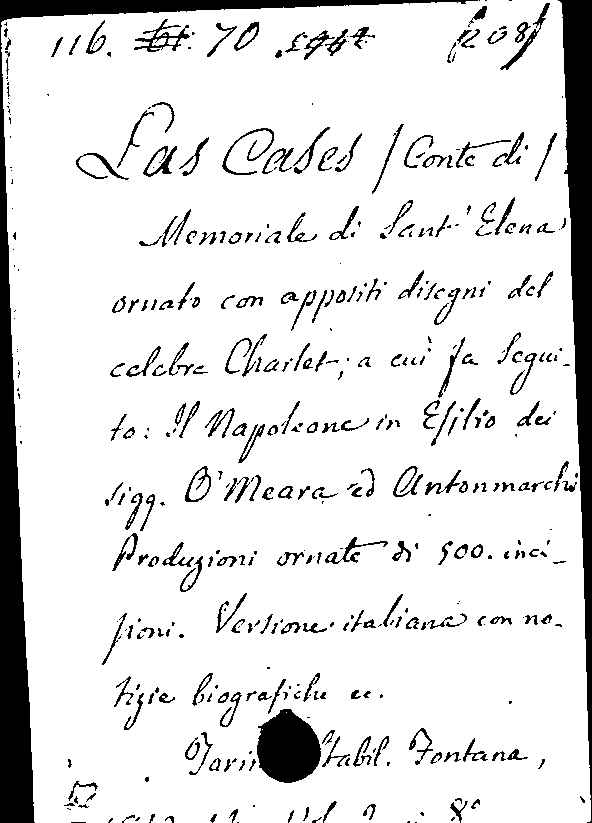 116. 70 [208]
Las Cases / Conte di /
Memoriale di Sant' Elena
ornato con appositi disegni del
celebre Charlet; a cui fa segui-
to: Il Napoleone in Esilio dei
sigg. O'Meara ed Antonmarchi
Produzioni ornate di 500. inci-
sioni. Versione italiana con no-
tizie biografiche ec.
Torin Stabil. Fontana,
Vol. 2 in 8°